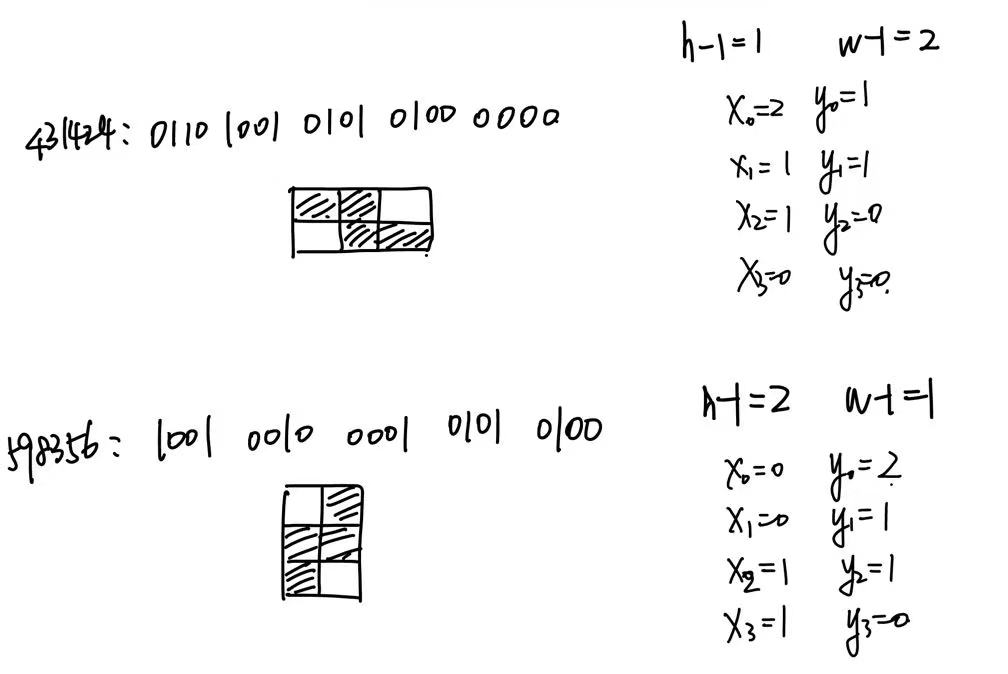 h-1=1 w-1=2
431424: 0110 1001 0101 0100 0000
x₀=2 y₀=1
x₁=1 y₁=1
x₂=1 y₂=0
x₃=0 y₃=0.
598356: 1001 0010 0001 0101 0100
h-1=2 w-1=1
x₀=0 y₀=2
x₁=0 y₁=1
x₂=1 y₂=1
x₃=1 y₃=0